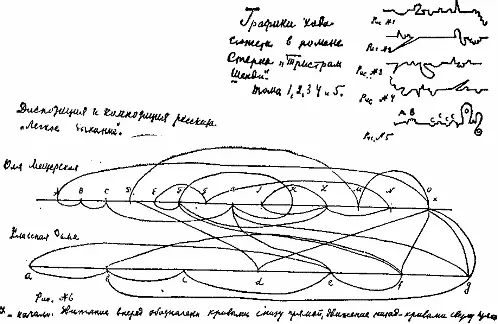 Графики хода
сюжета в романе
Стерна „Тристрам
Шенди“
тома 1, 2, 3 4 и 5.
Рис №1
Рис №2
Рис №3
Рис №4
А В
с c c c D
Рис. №5
Диспозиция и композиция рассказа
„Легкое дыхание“.
Оля Мещерская
А В С
Классная дама
a b c d e f g
Рис. №6
X - начало: Движение вперед обозначены кривыми снизу прямой, движение назад - кривыми сверху